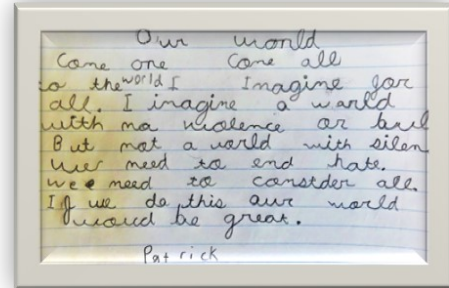 Our world
Come one Come all
to the world I Imagine for
all. I imagine a world
with no violence or
But not a world with silen
We need to end hate.
wee need to constder all.
If we do this our world
would be great.
Patrick